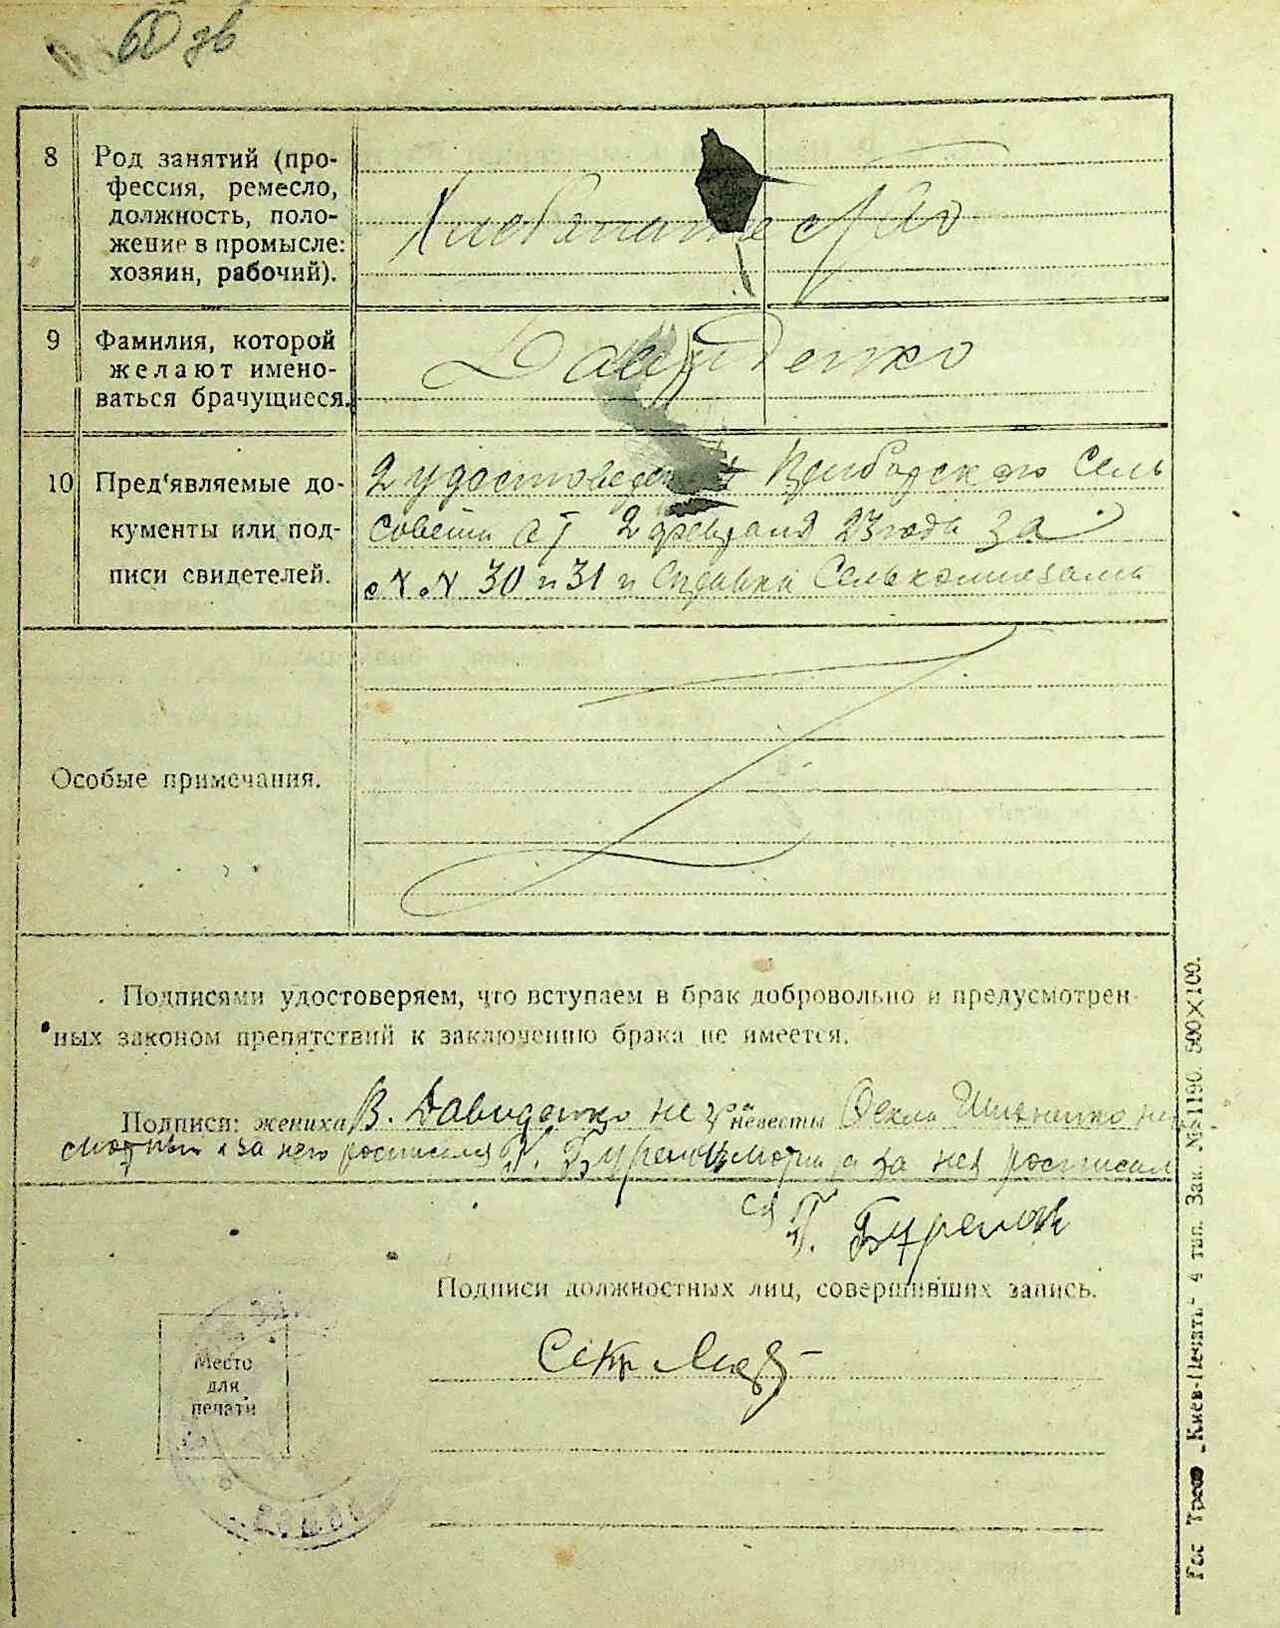 60 зв
8 Род занятий (про-
фессия, ремесло,
должность, поло-
жение в промысле:
хозяин, рабочий).
9 Фамилия, которой
желают имено-
ваться брачущиеся.
Давиденко
10 Пред'являемые до-
кументы или под-
писи свидетелей.
2 удостоверения Сель
Совета от 2 февраля 23 года за
№ № 30 и 31 и справка
Особые примечания.
Подписями удостоверяем, что вступаем в брак добровольно и предусмотрен-
ных законом препятствий к заключению брака не имеется.
Подписи: жениха В. Давиденко не гра невесты Фекла не
а за него росписался Г. а за нея росписал
ся Г.
Подписи должностных лиц, совершивших запись.
Секр
Место
для
печати
Гос Трест „Киев-Печать" 4 тип. Зак. № 1190. 500×100.